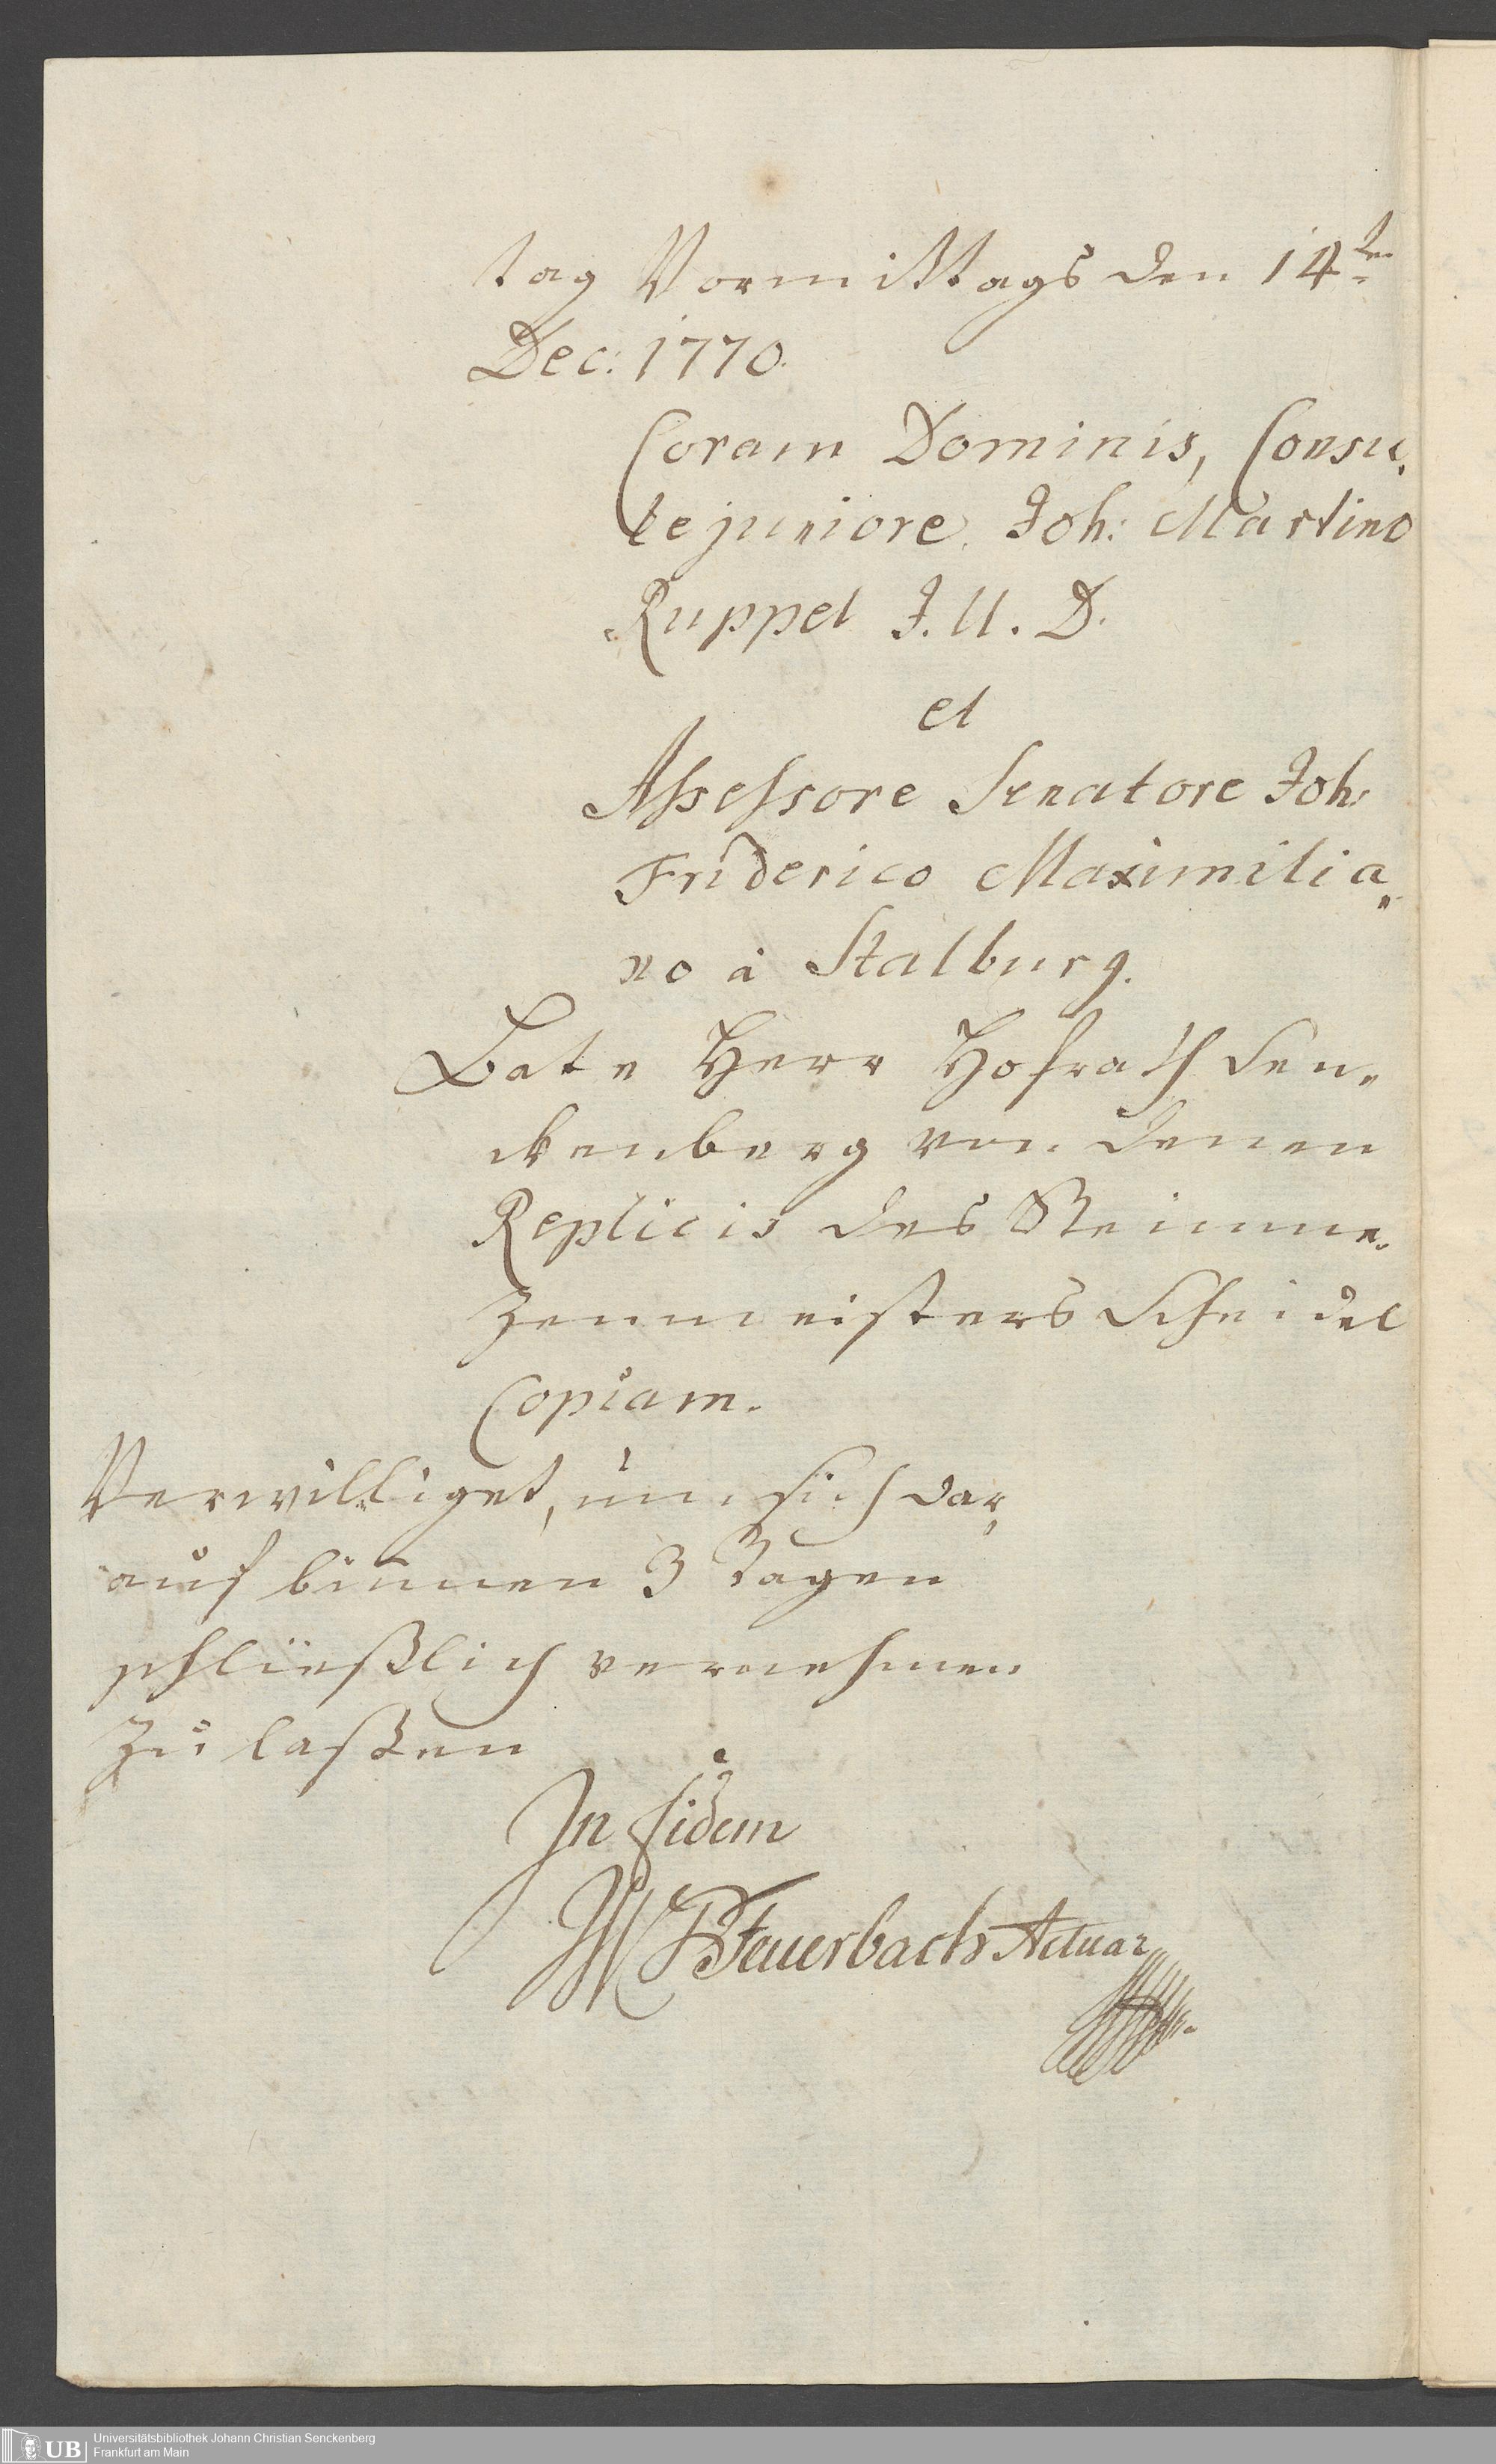 tag Vormittags den 14ten
Dec: 1770.
Coram Dominis, Consu,
le juniore Joh: Martino
Ruppel J. U. D.
et
Assessore Senatore Joh:
Friderico Maximilia„
no à Stalburg.
Bate Herr Hofrath Sen„
ckenberg von denen
Replicis des Steinme„
zenmeisters Scheidel
Copiam.
Verwilliget, um sich dar„
auf binnen 3 Tagen
schließlich vernehmen
zu laßen
In fidem
Feuerbach Actuar
UB
Universitätsbibliothek Johann Christian Senckenberg
Frankfurt am Main